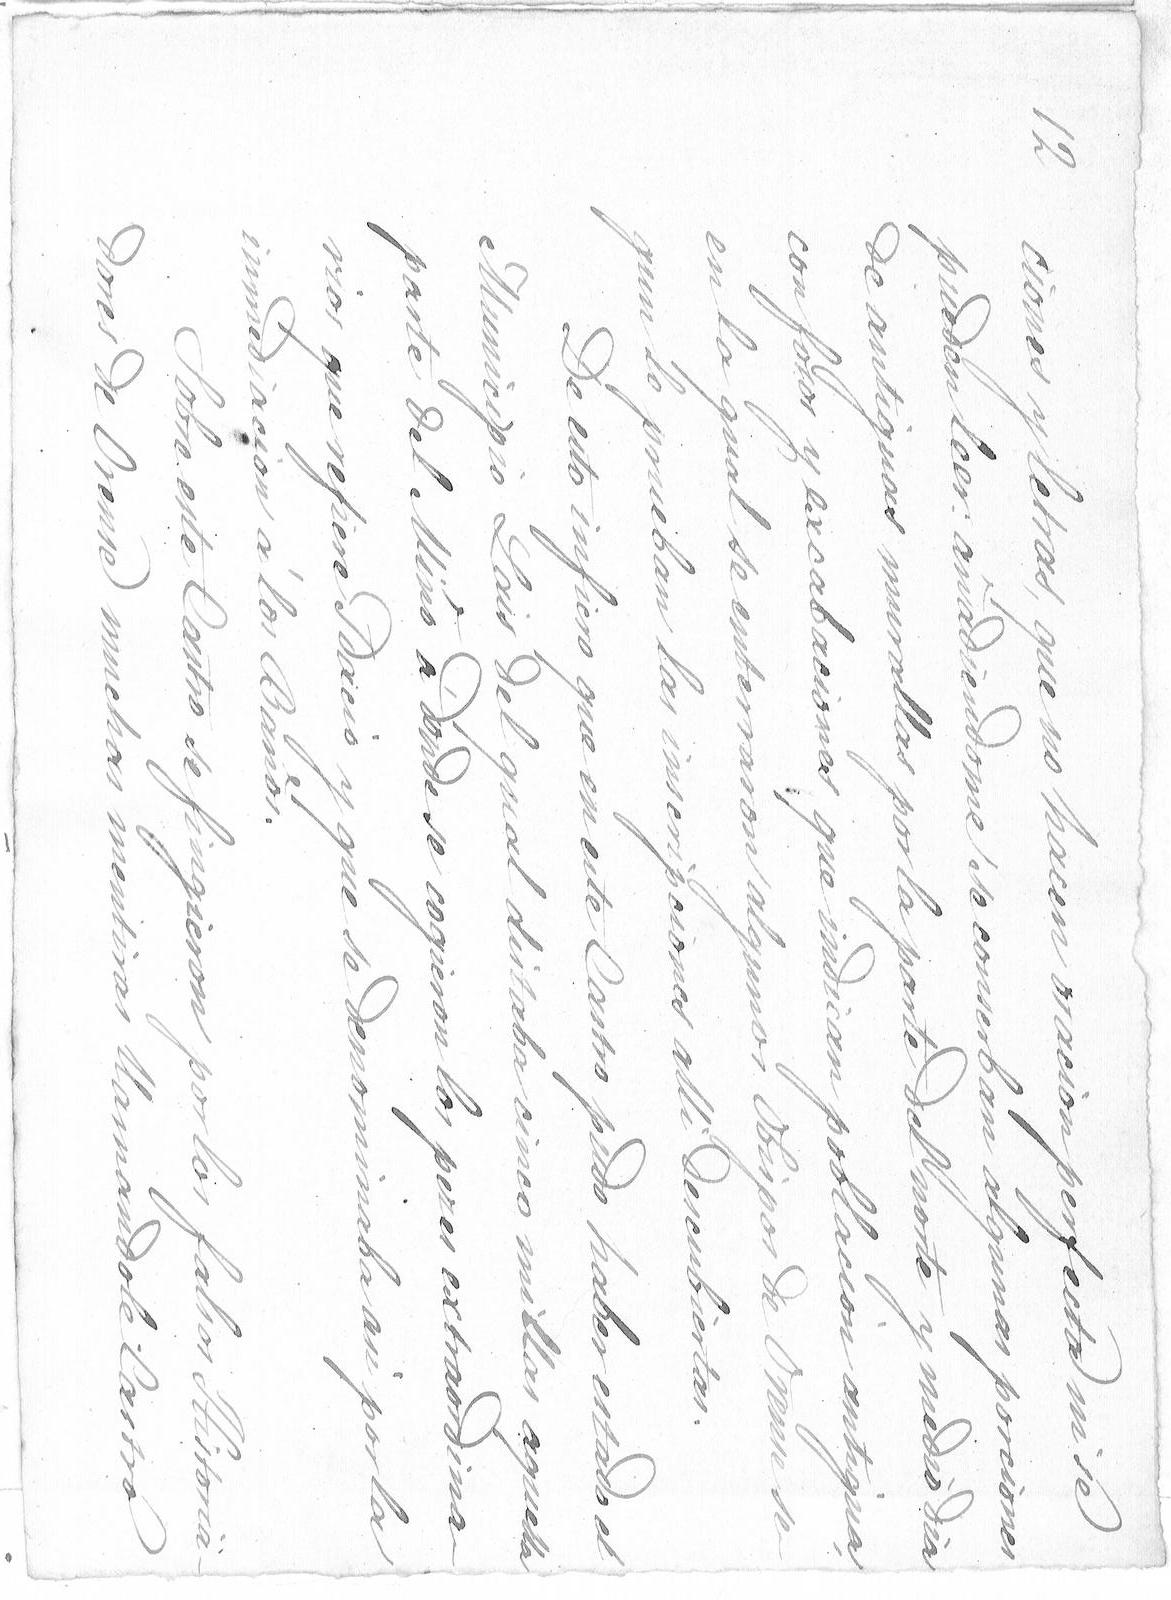 12
ciones y letras, que no hacen racion perfecta ni se
pueden leer: añadiendome se conserban algunas porciones
de antiguas murallas por la parte del Norte y medio dia
con fosos y excabaciones que indican poblacion antigua,
en la qual se enterraron algunos Obispos de Orense se-
gun lo prueban las inscripciones alli descubiertas.
De esto infiero que en este Castro pudo haber estado el
Municipio Lais del qual distaba cinco millas aquella
parte del Miño a donde se cogieron los peces extraordina-
rios que refiere Idacio y que se denominaba asi por la
inmediacion a los Baños.
Sobre este Castro se fingieron por los falsos Historia-
dores de Orense muchas mentiras llamandole Castro